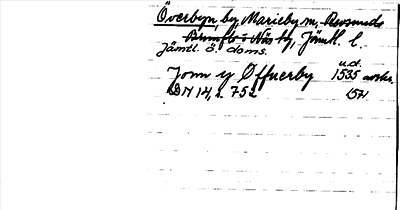 Överbyn, by, Marieby sn, Revsunds
Brunflo o Näs tg, Jämtl. l.
Jämtl. ö. doms.
Jonn y Øffuerby u.d. 1535 avskr.
DN 14, s. 752 1571